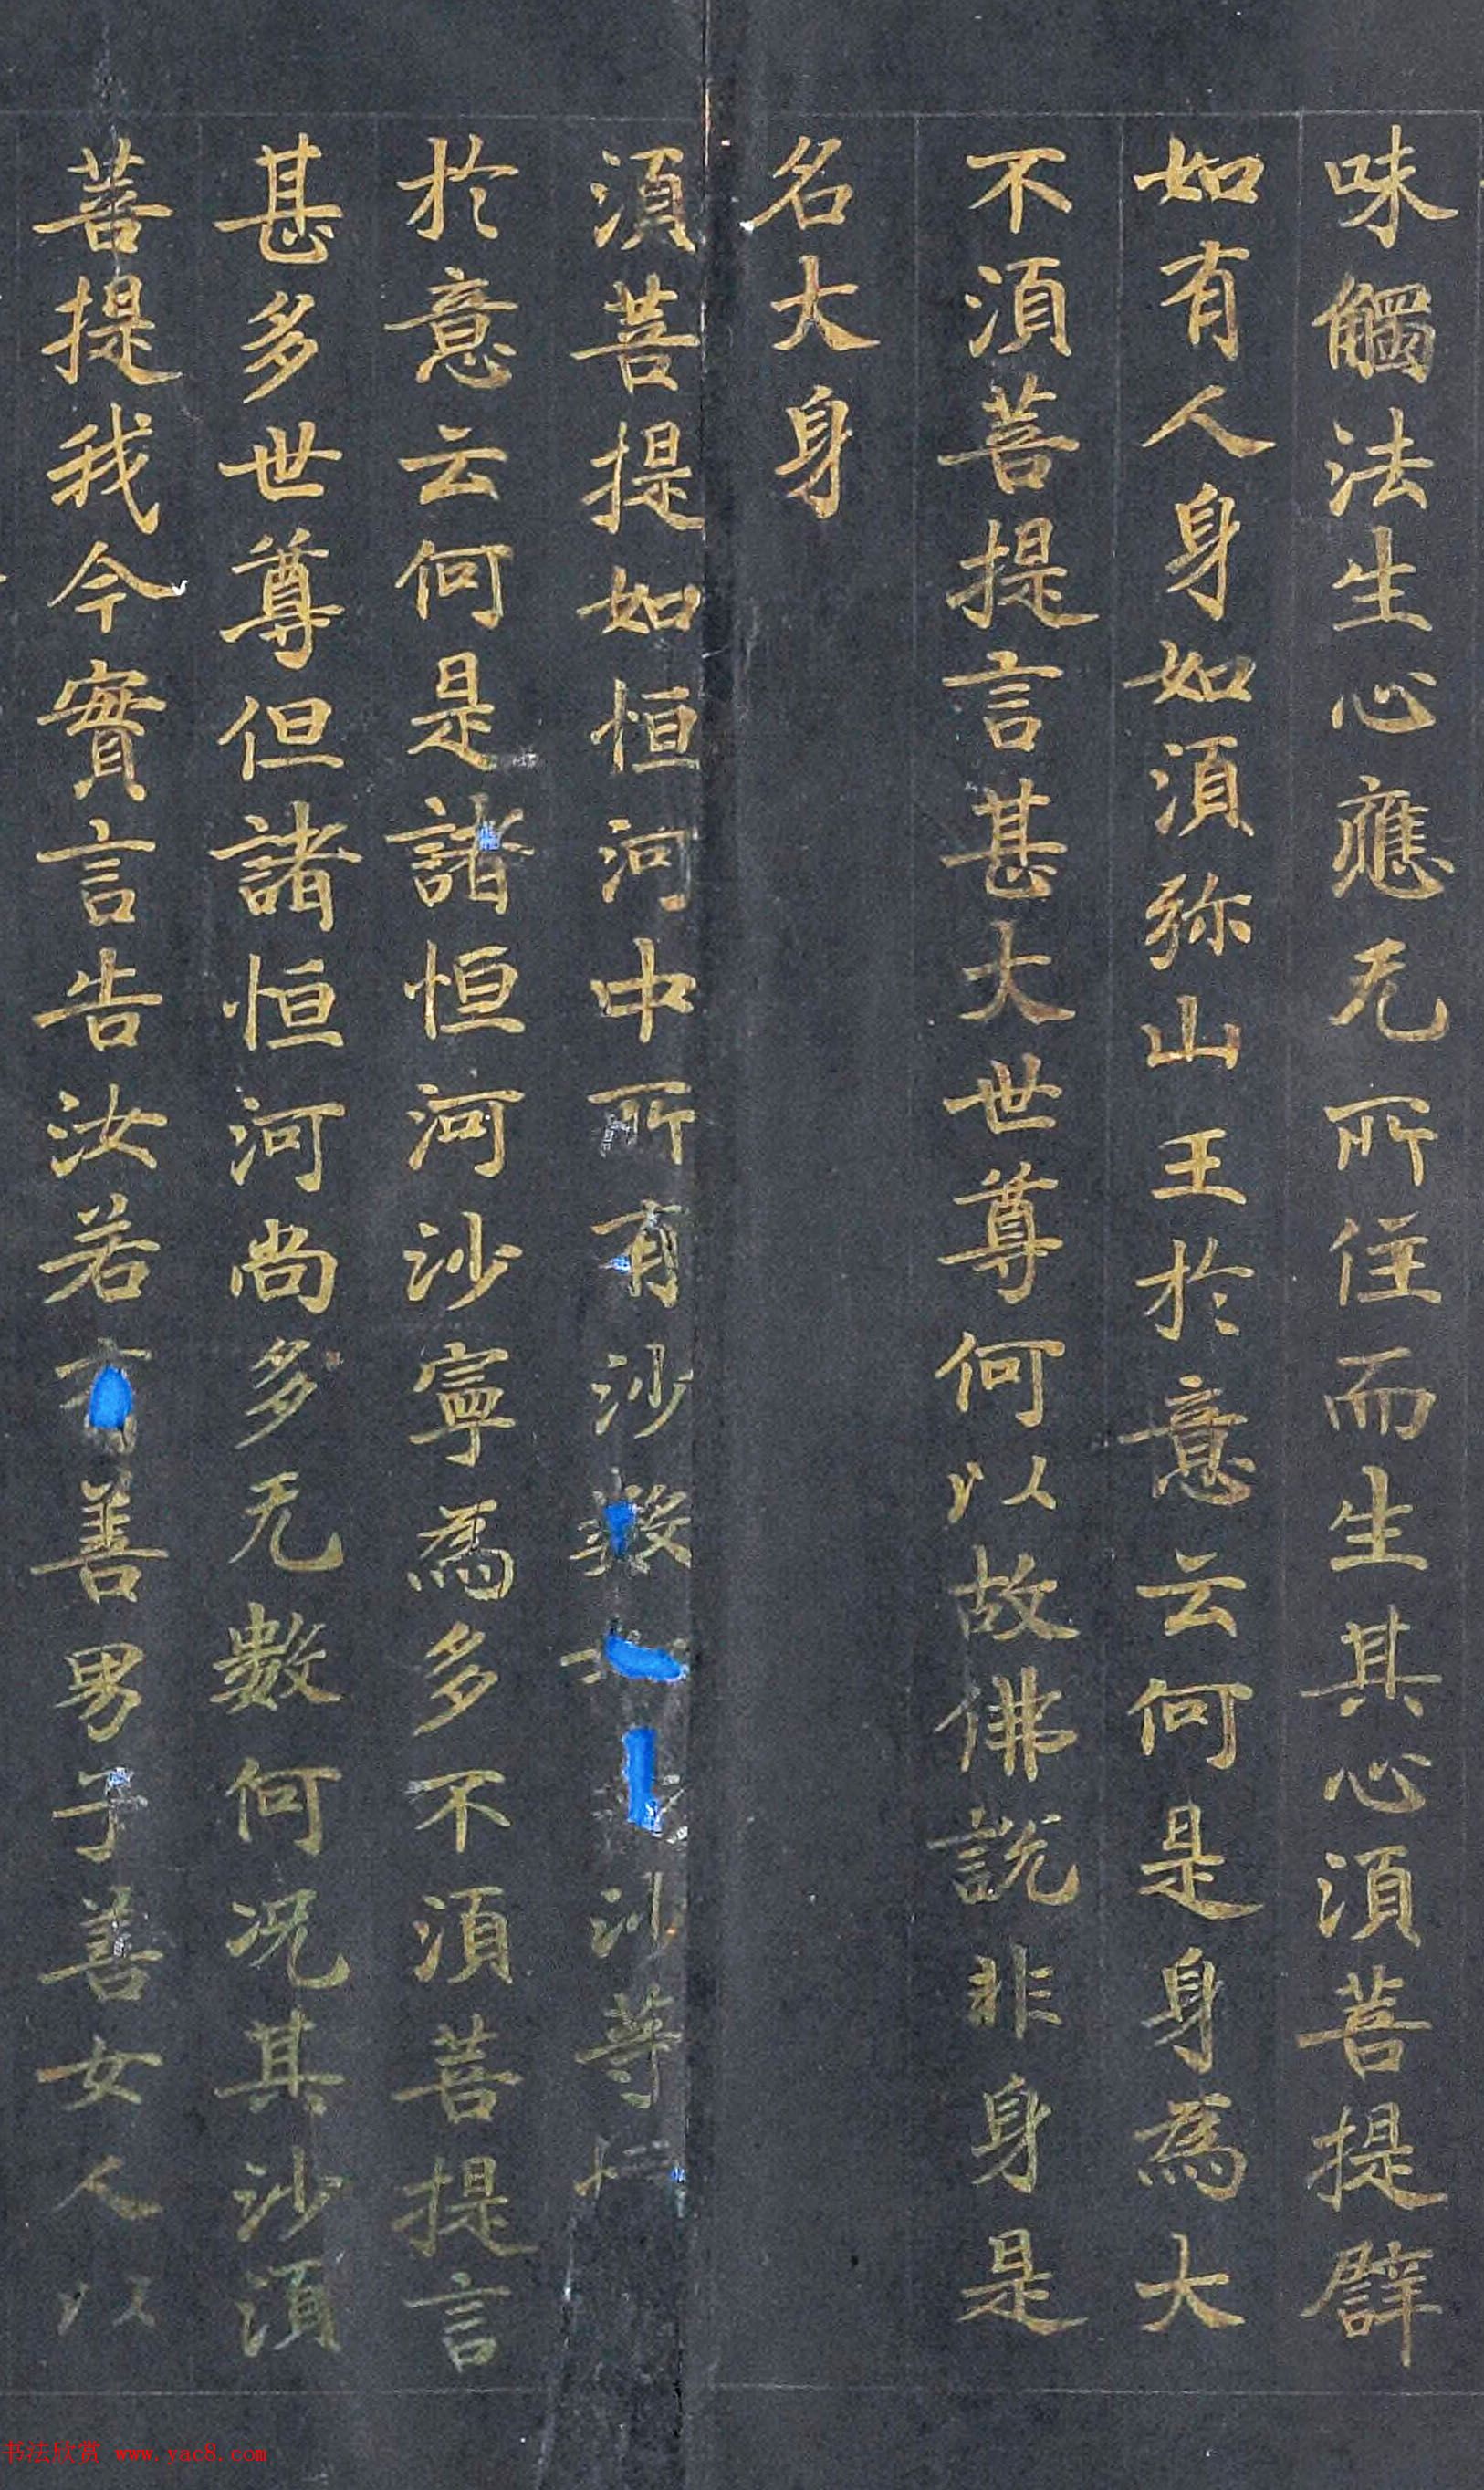 味觸法生心應无所住而生其心須菩提辟
如有人身如須弥山王於意云何是身為大
不須菩提言甚大世尊何以故佛說非身是
名大身
須菩提如恒河中所有沙數沙等恒
於意云何是諸恒河沙寧為多不須菩提言
甚多世尊但諸恒河尚多无數何况其沙須
菩提我今實言告汝若有善男子善女人以
书法欣赏 www.yac8.com